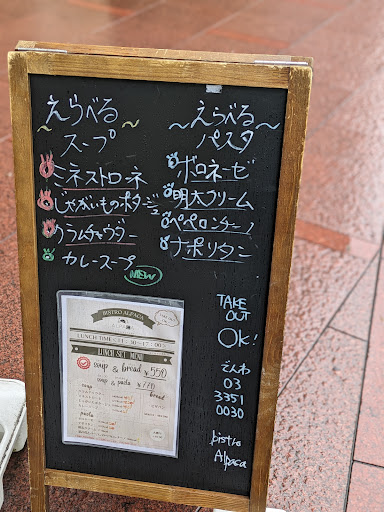 えらべる
スープ
ミネストローネ
じゃがいものポタージュ
クラムチャウダー
カレースープ
NEW
～えらべる～
パスタ
ボロネーゼ
明太クリーム
ペペロンチーノ
ナポリタン
TAKE
OUT
OK!
でんわ
03
3351
0030
bistro
Alpaca
BISTRO ALPACA
LUNCH TIME 11:30~17:00
LUNCH SET MENU
soup & bread ¥550
soup & pasta ¥770
soup
bread
pasta